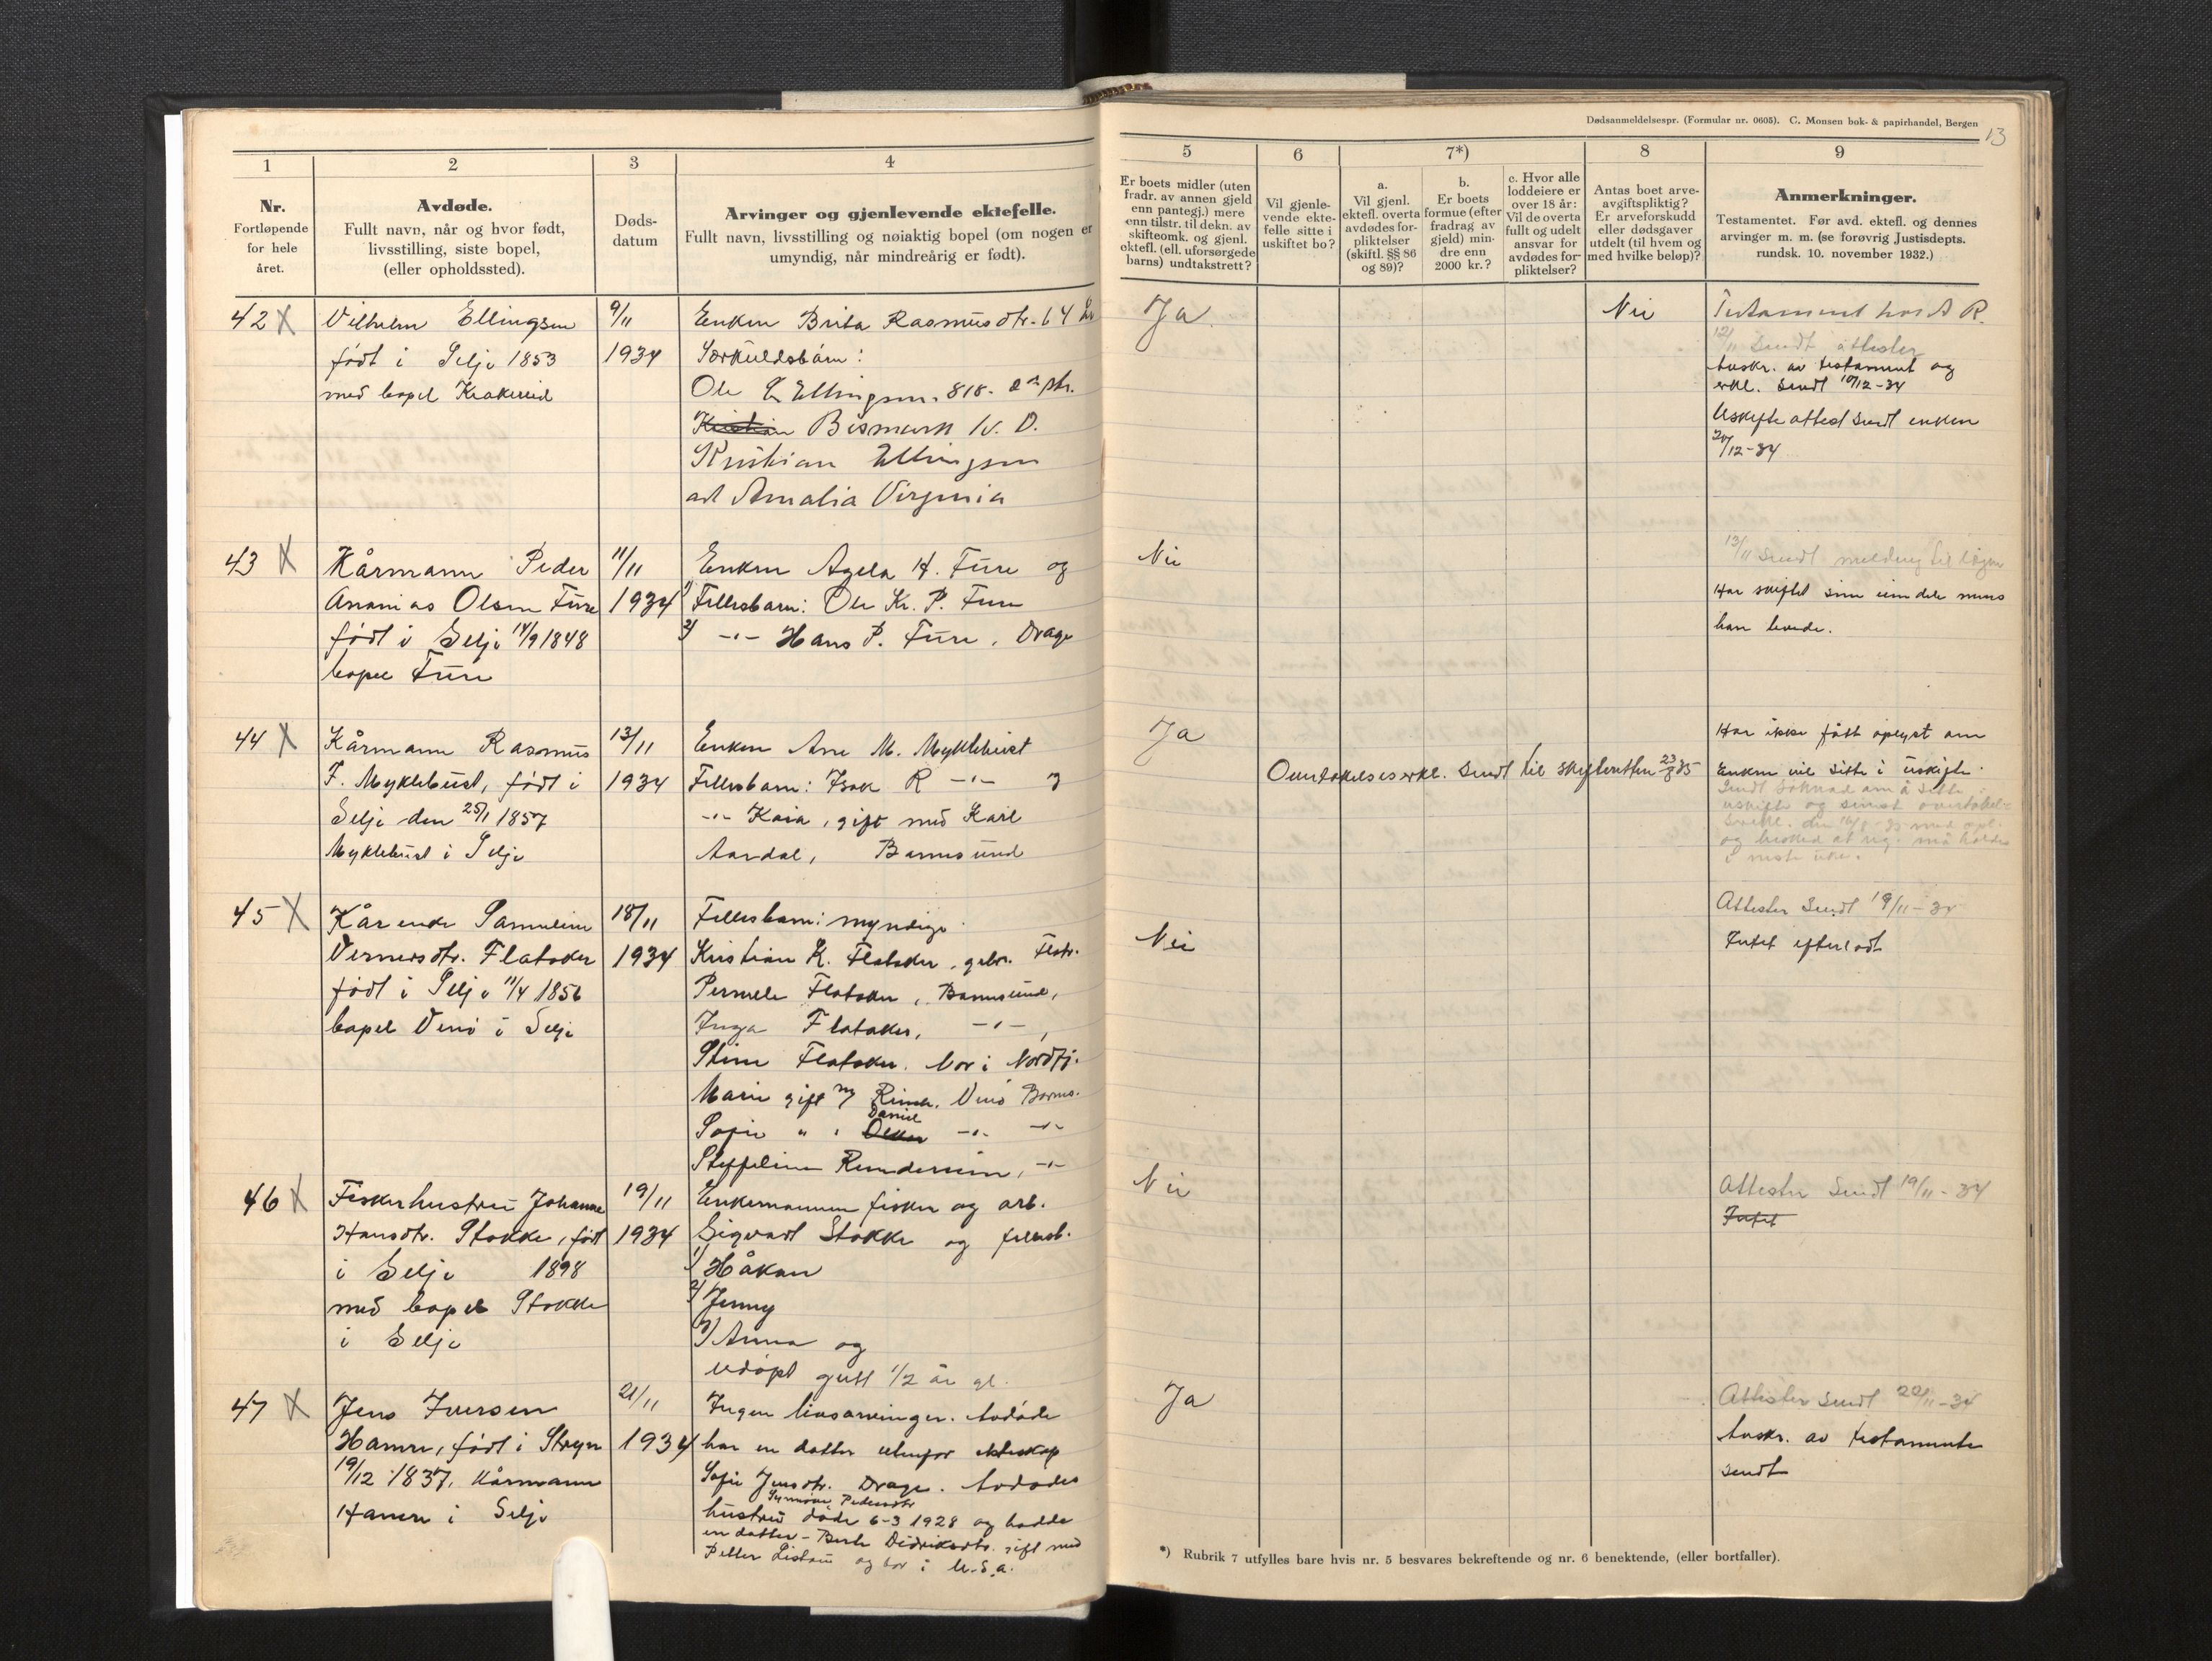 Dødsanmeldelsespr. (Formular nr. 0605). C. Monsen bok- & papirhandel, Bergen
13
1
2
3
4
Nr.
Fortløpende
for hele
året.
Avdøde.
Fullt navn, når og hvor født,
livsstilling, siste bopel,
(eller opholdssted).
Døds-
datum
Arvinger og gjenlevende ektefelle.
Fullt navn, livsstilling og nøiaktig bopel (om nogen er
umyndig, når mindreårig er født).
5
6
7*)
8
9
Er boets midler (uten
fradr. av annen gjeld
enn pantegj.) mere
enn tilstr. til dekn. av
skifteomk. og gjenl.
ektefl. (ell. uforsørgede
barns) undtakstrett?
Vil gjenle-
vende ekte-
felle sitte i
uskiftet bo?
a.
Vil gjenl.
ektefl. overta
avdødes for-
pliktelser
(skiftl. §§ 86
og 89)?
b.
Er boets
formue (efter
fradrag av
gjeld) min-
dre enn
2000 kr.?
c. Hvor alle
loddeiere er
over 18 år:
Vil de overta
fullt og udelt
ansvar for
avdødes for-
pliktelser?
Antas boet arve-
avgiftspliktig?
Er arveforskudd
eller dødsgaver
utdelt (til hvem og
med hvilke beløp)?
Anmerkninger.
Testamentet. Før avd. ektefl. og dennes
arvinger m. m. (se forøvrig Justisdepts.
rundsk. 10. november 1932.)
42 X
Vilhelm Ellingsen
født i Selje 1853
med bopel Krakereid
9/11
1934
Enken Brita Rasmusdtr. 64 år
Særkuldsbarn:
Ole E. Ellingsen. 818.
Kristian Bismark N. D.
Kristian Ellingsen
Amalia Virginia
Ja
Nei
Testament hos A R.
12/11 Sendt attester
Avskr. av testament og
erkl. sendt 10/12-34
Uskifteattest sendt enken
20/12-34
43 X
Kårmann Peder
Ananias Olsen Fure
født i Selje 14/9 1848
bopel Fure
11/11
1934
Enken Agela H. Fure og
1/ Fellesbarn: Ole Kr. P. Fure
2/ -"- Hans P. Fure, Drage
Nei
13/11 sendt melding til
Har skiftet sine eiendele mens
han levde.
44 X
Kårmann Rasmus
F. Myklebust, født i
Selje den 25/1 1857
Myklebust i Selje
13/11
1934
Enken Ane M. Myklebust
Fellesbarn: Isak R -"-
-"- Kaia, gift med Karl
Aardal, Barmsund
Ja
Overtakelseserkl. sendt til skifteretten 23/8 35
Har ikke fått oplyst om
Enken vil sitte i uskifte.
Sendt søknad om å sitte i
uskifte og sendt overtakel-
og beskjed at reg. må holdes
i neste uke.
45 X
Kårenke Samueline
Vernersdtr. Flatøker
født i Selje 11/4 1856
bopel Venø i Selje
18/11
1934
Fellesbarn: myndige
Kristian K. Flataker, gbr. Flatr.
Pernele Flataker, Barmsund,
Inga Flataker, -"-,
Stine Flataker. Nor i Nordfj.
Marie gift m/ Venø Barms.
Sofie " " Olker Daniel -"- -"-
Steffeline, -"-
Nei
Attester sendt 19/11-34
Intet efterlodt
46 X
Fiskerhustru Johanne
Hansdtr. Stokke, født
i Selje 1898
med bopel Stokke
i Selje
19/11
1934
Enkemannen fisker og arb.
Sigvart Stokke og fellesb.
1/ Håkon
2/ Jenny
3/ Anna og
udøpt gutt 1/2 år gl.
Nei
Attester sendt 19/11-34
Intet
47 X
Jens Iversen
Hamre, født i Stryn
19/12 1837. Kårmann
Hamre i Selje
21/11
1934
Ingen livsarvinger. Avdøde
har en datter utenfor ekteskap
Sofie Jensdtr. Drage. Avdødes
Synnøve Pedersdtr
hustru døde 6-3 1928 og hadde
en datter - Berte Didriksdtr. gift med
Petter Listau og bor i U.S.A.
Ja
Attester sendt 22/11-34
Avskr. av testamente
sendt
*) Rubrik 7 utfylles bare hvis nr. 5 besvares bekreftende og nr. 6 benektende, (eller bortfaller).